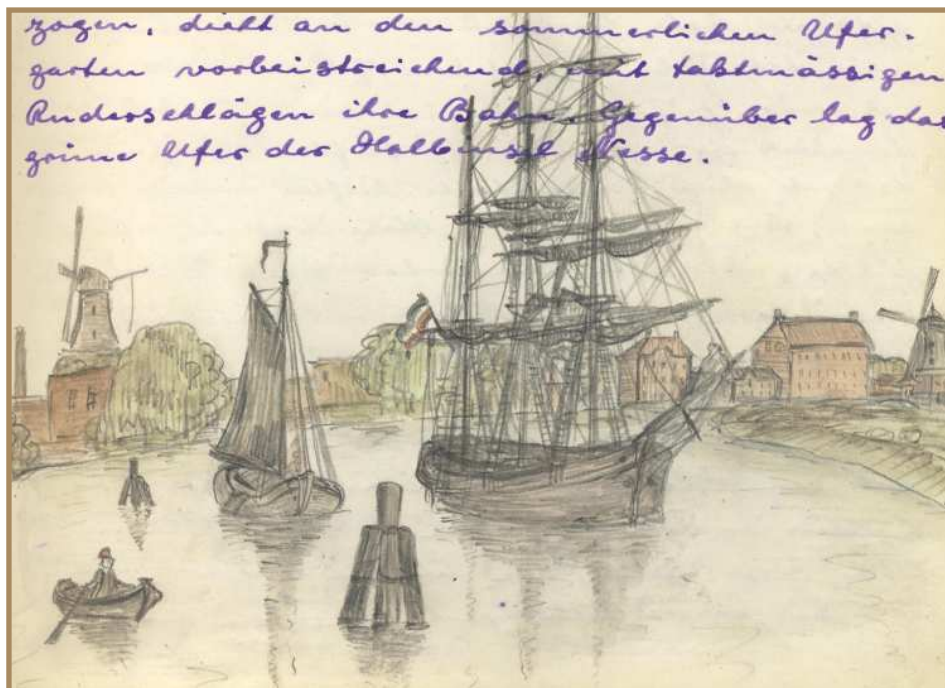 zogen, dicht an den sommerlichen Ufer-
garten vorbeistreichend, mit taktmässigen
Ruderschlägen ihre Bahn. Gegenüber lag das
grüne Ufer der Halbinsel Nesse.